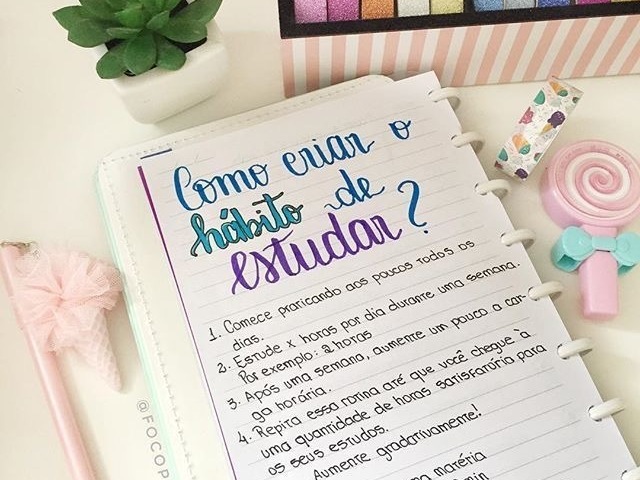 Como criar o
hábito de
estudar?
1. Comece praricando aos poucos rodos os
dias.
2. Esrude x horas por dia duranre uma semana.
Por exemplo: 2 horas
3. Após uma semana, aumenre um pouco a car-
ga horária.
4. Repira essa rorina aré que você chegue à
uma quanridade de horas sarisfarória para
os seus esrudos.
Aumenre gradarivamenre!
ma maréria
min
@FOCOP